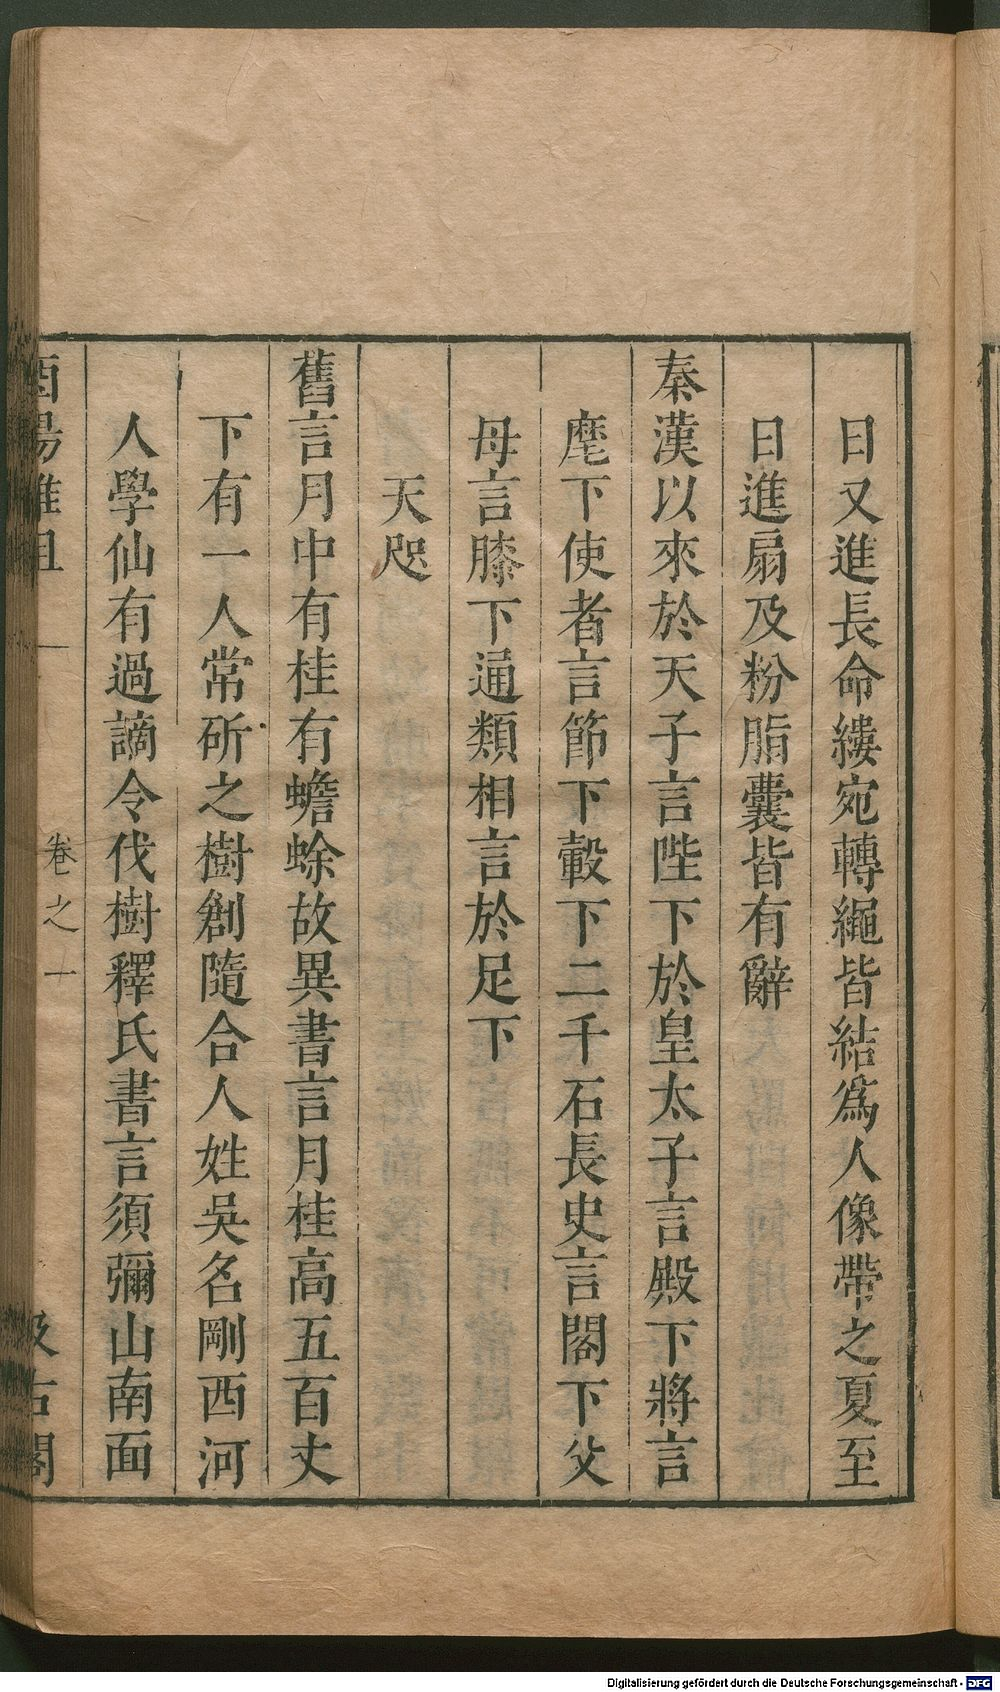 日又進長命縷宛轉繩皆結爲人像帶之夏至
日進扇及粉脂囊皆有辭
秦漢以來於天子言陛下於皇太子言殿下將言
麾下使者言節下轂下二千石長史言閤下父
母言膝下通類相言於足下
天咫
舊言月中有桂有蟾蜍故異書言月桂高五百丈
下有一人常斫之樹創隨合人姓吳名剛西河
人學仙有過謫令伐樹釋氏書言須彌山南面
酉陽雜俎 卷之一 汲古閣
Digitalisierung gefördert durch die Deutsche Forschungsgemeinschaft - DFG